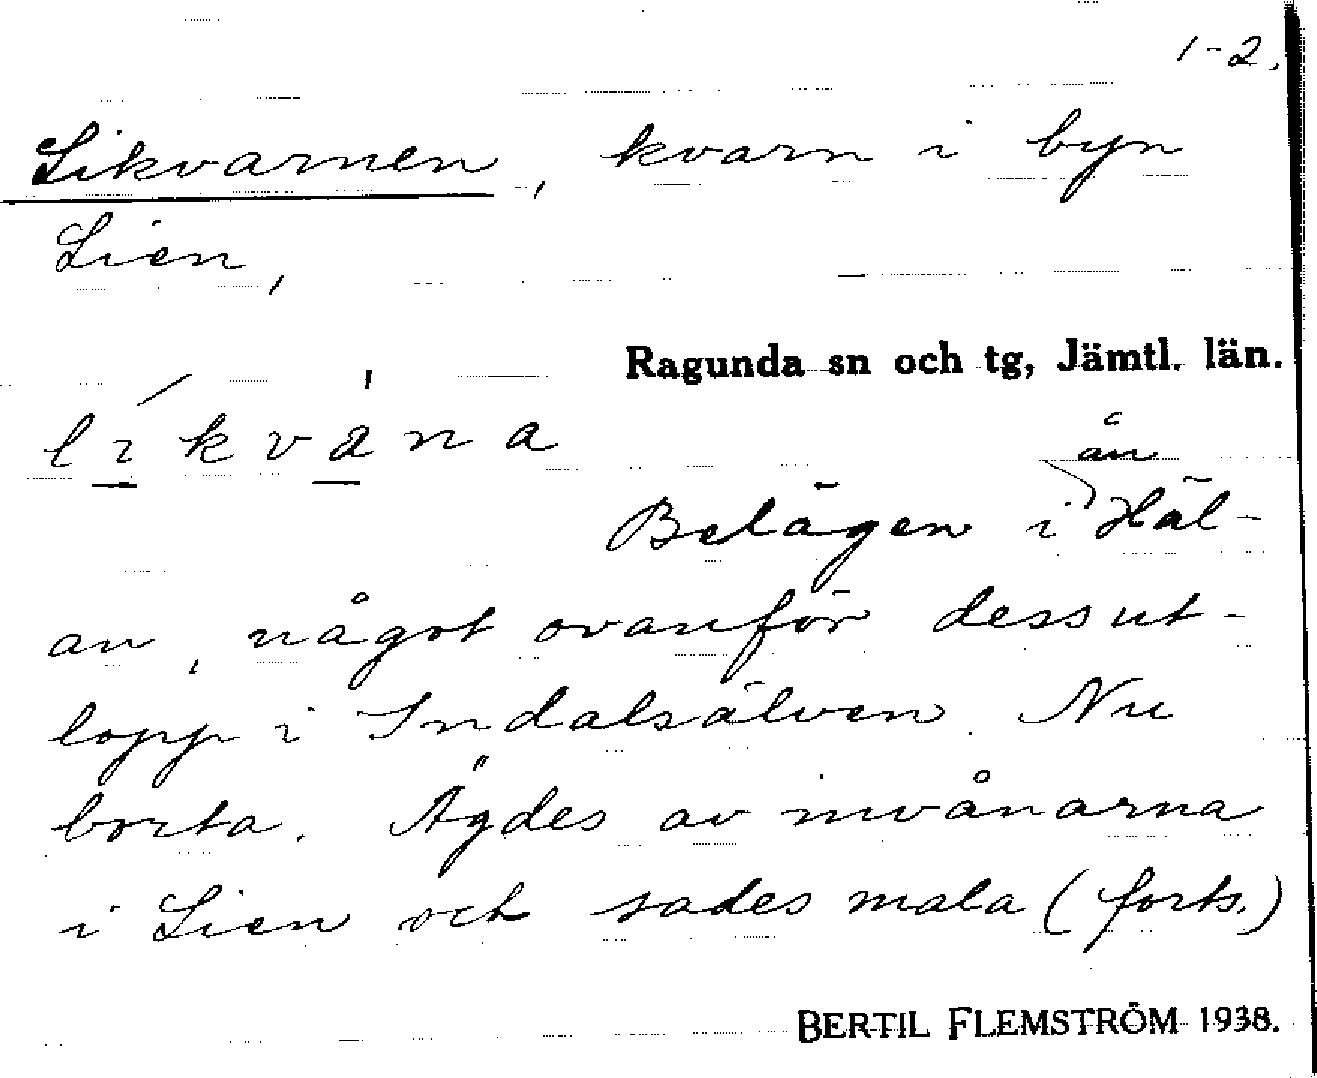 1-2.
Likvarnen, kvarn i byn
Lien,
Ragunda sn och tg, Jämtl. län.
lí̲kvа̲̍na
ån
Belägen i Häl-
an, något ovanför dess ut-
lopp i Indalsälven. Nu
borta. Ägdes av invånarna
i Lien och sades mala (forts.)
BERTIL FLEMSTRÖM 1938.